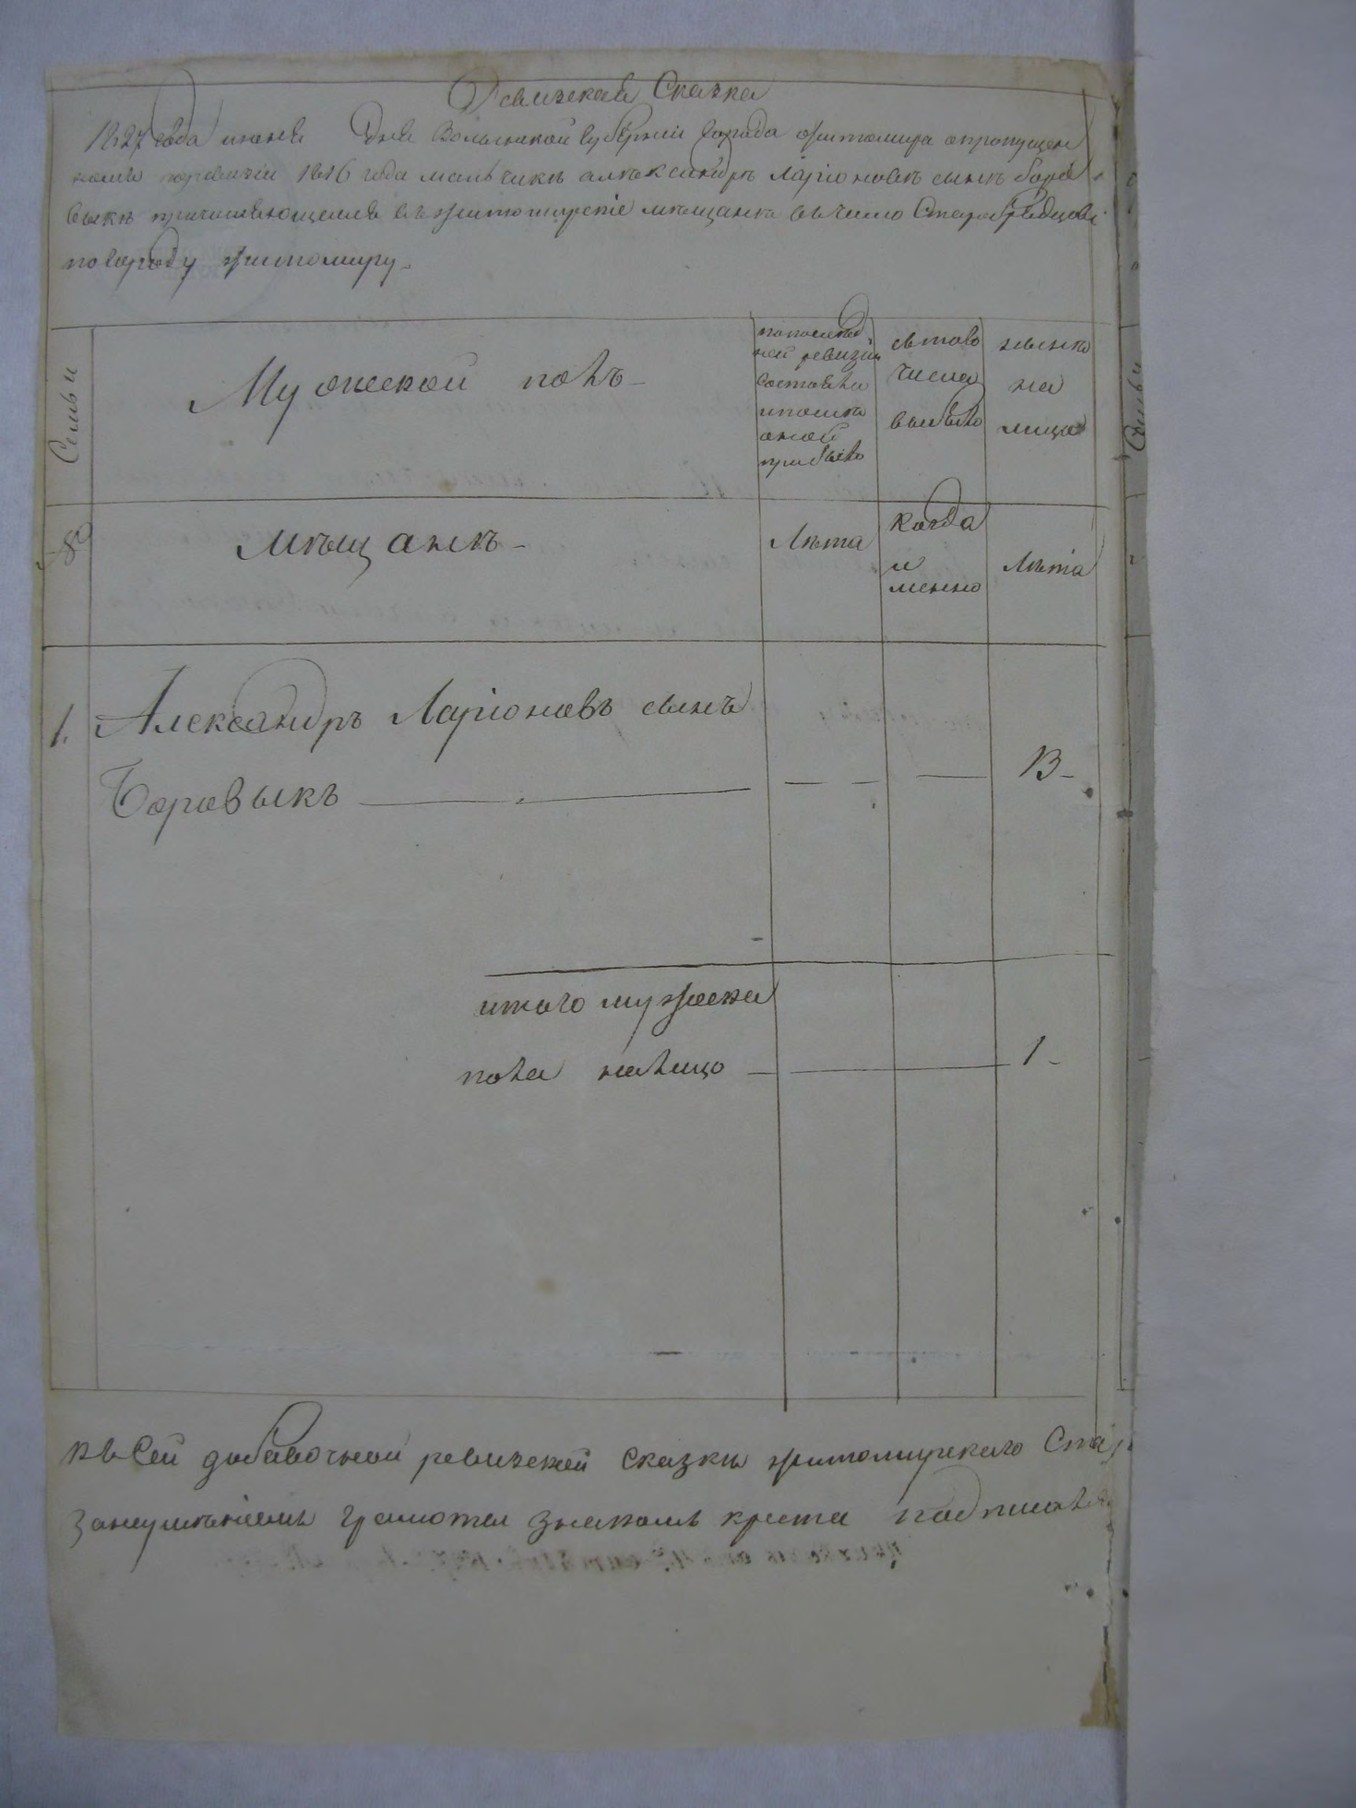 Ревизская Сказка
1827 года июня Дня Волынской губернии города Житомира о пропущен
номъ поревизіи 1816 года мальчикъ алъксандръ Ларіоновъ сынъ Боро
выкъ причисляющемся въ житомирскіе мѣщанъ въ число Старообрядцовъ
по городу житомиру
Семьи
Мужеской полъ
по послед
ней ревизіи
состояло
и после
оной
прибыло
съ того
числа
выбыло
нынѣ
на
лицо
Семьи
№
мѣщанъ
Лѣта
когда
и
менно
Лѣта
1. Александръ Ларіоновъ сынъ
Боровыкъ
13
итого мужска
пола налицо 1
къ Сей добавочной ревизской Сказки житомирскаго Ста
занеумѣніемъ грамоты знакомъ креста подписал